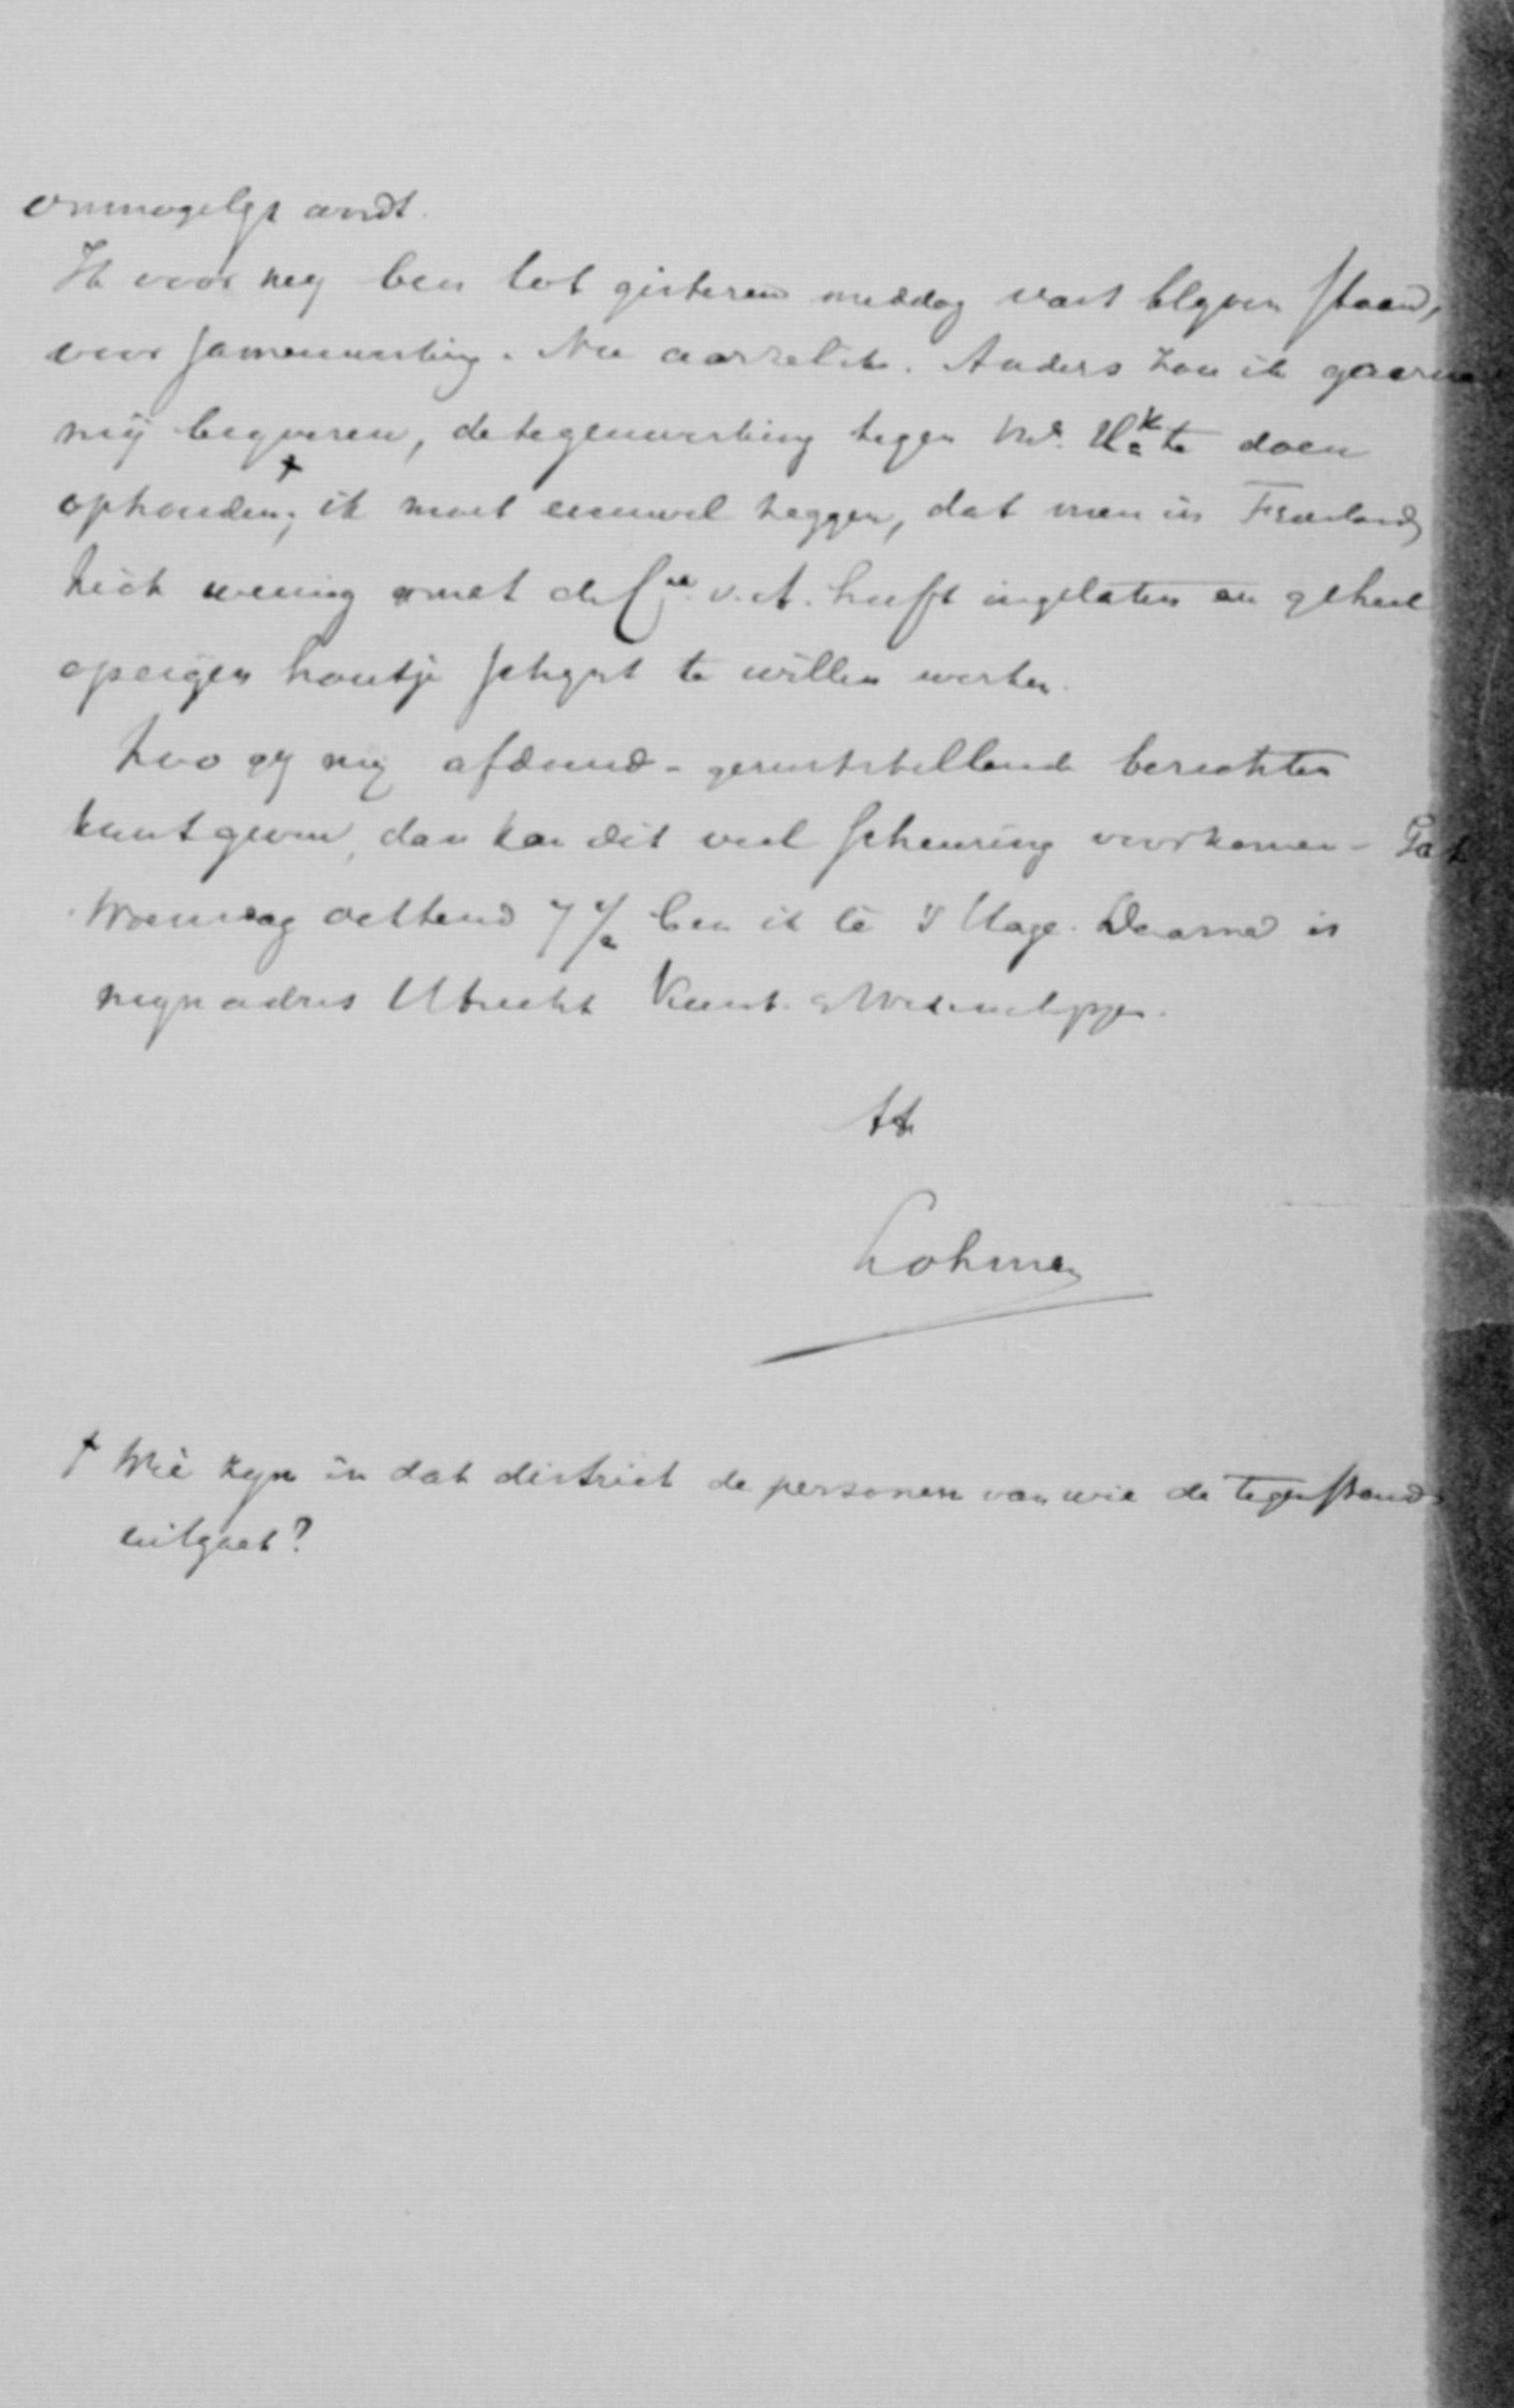 onmogelijk wordt.
Ik voor mij ben tot gisteren middag vast blijven staan,
voor samenwerking. Nu aarzel ik. Anders zou ik gaarne
mij beijveren, de tegenwerking tegen te doen
ophouden †; ik moet evenwel zeggen, dat men in Friesland
zich weinig met de C.ie v. A. heeft ingelaten en geheel
op eigen houtje schijnt te willen werken.
Zoo gij mij afdoend-geruststellende berichten
kunt geven, dan kan dit veel scheuring voorkomen - Tot
Woensdag ochtend 7 1/2 ben ik te 's Hage. Daarna is
mijn adres Utrecht Kunst. & Wetenschappen.
tt
Lohman
† Wie zijn in dat district de personen van wie de tegenstand
uitgaat?